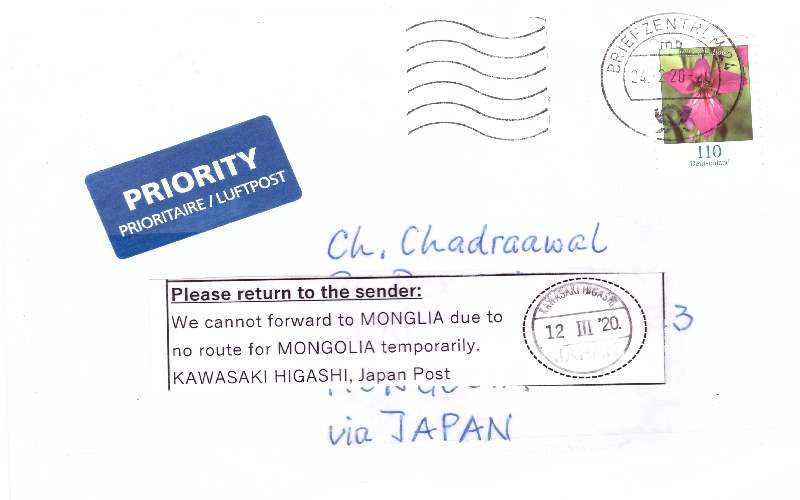 BRIEFZENTRUM 21
mp
24.-2.20-2
110
Deutschland
PRIORITY
PRIORITAIRE / LUFTPOST
Ch. Chadraawal
Please return to the sender:
We cannot forward to MONGLIA due to
no route for MONGOLIA temporarily.
KAWASAKI HIGASHI, Japan Post
KAWASAKI HIGASHI
12 III '20.
JAPAN
3
via JAPAN